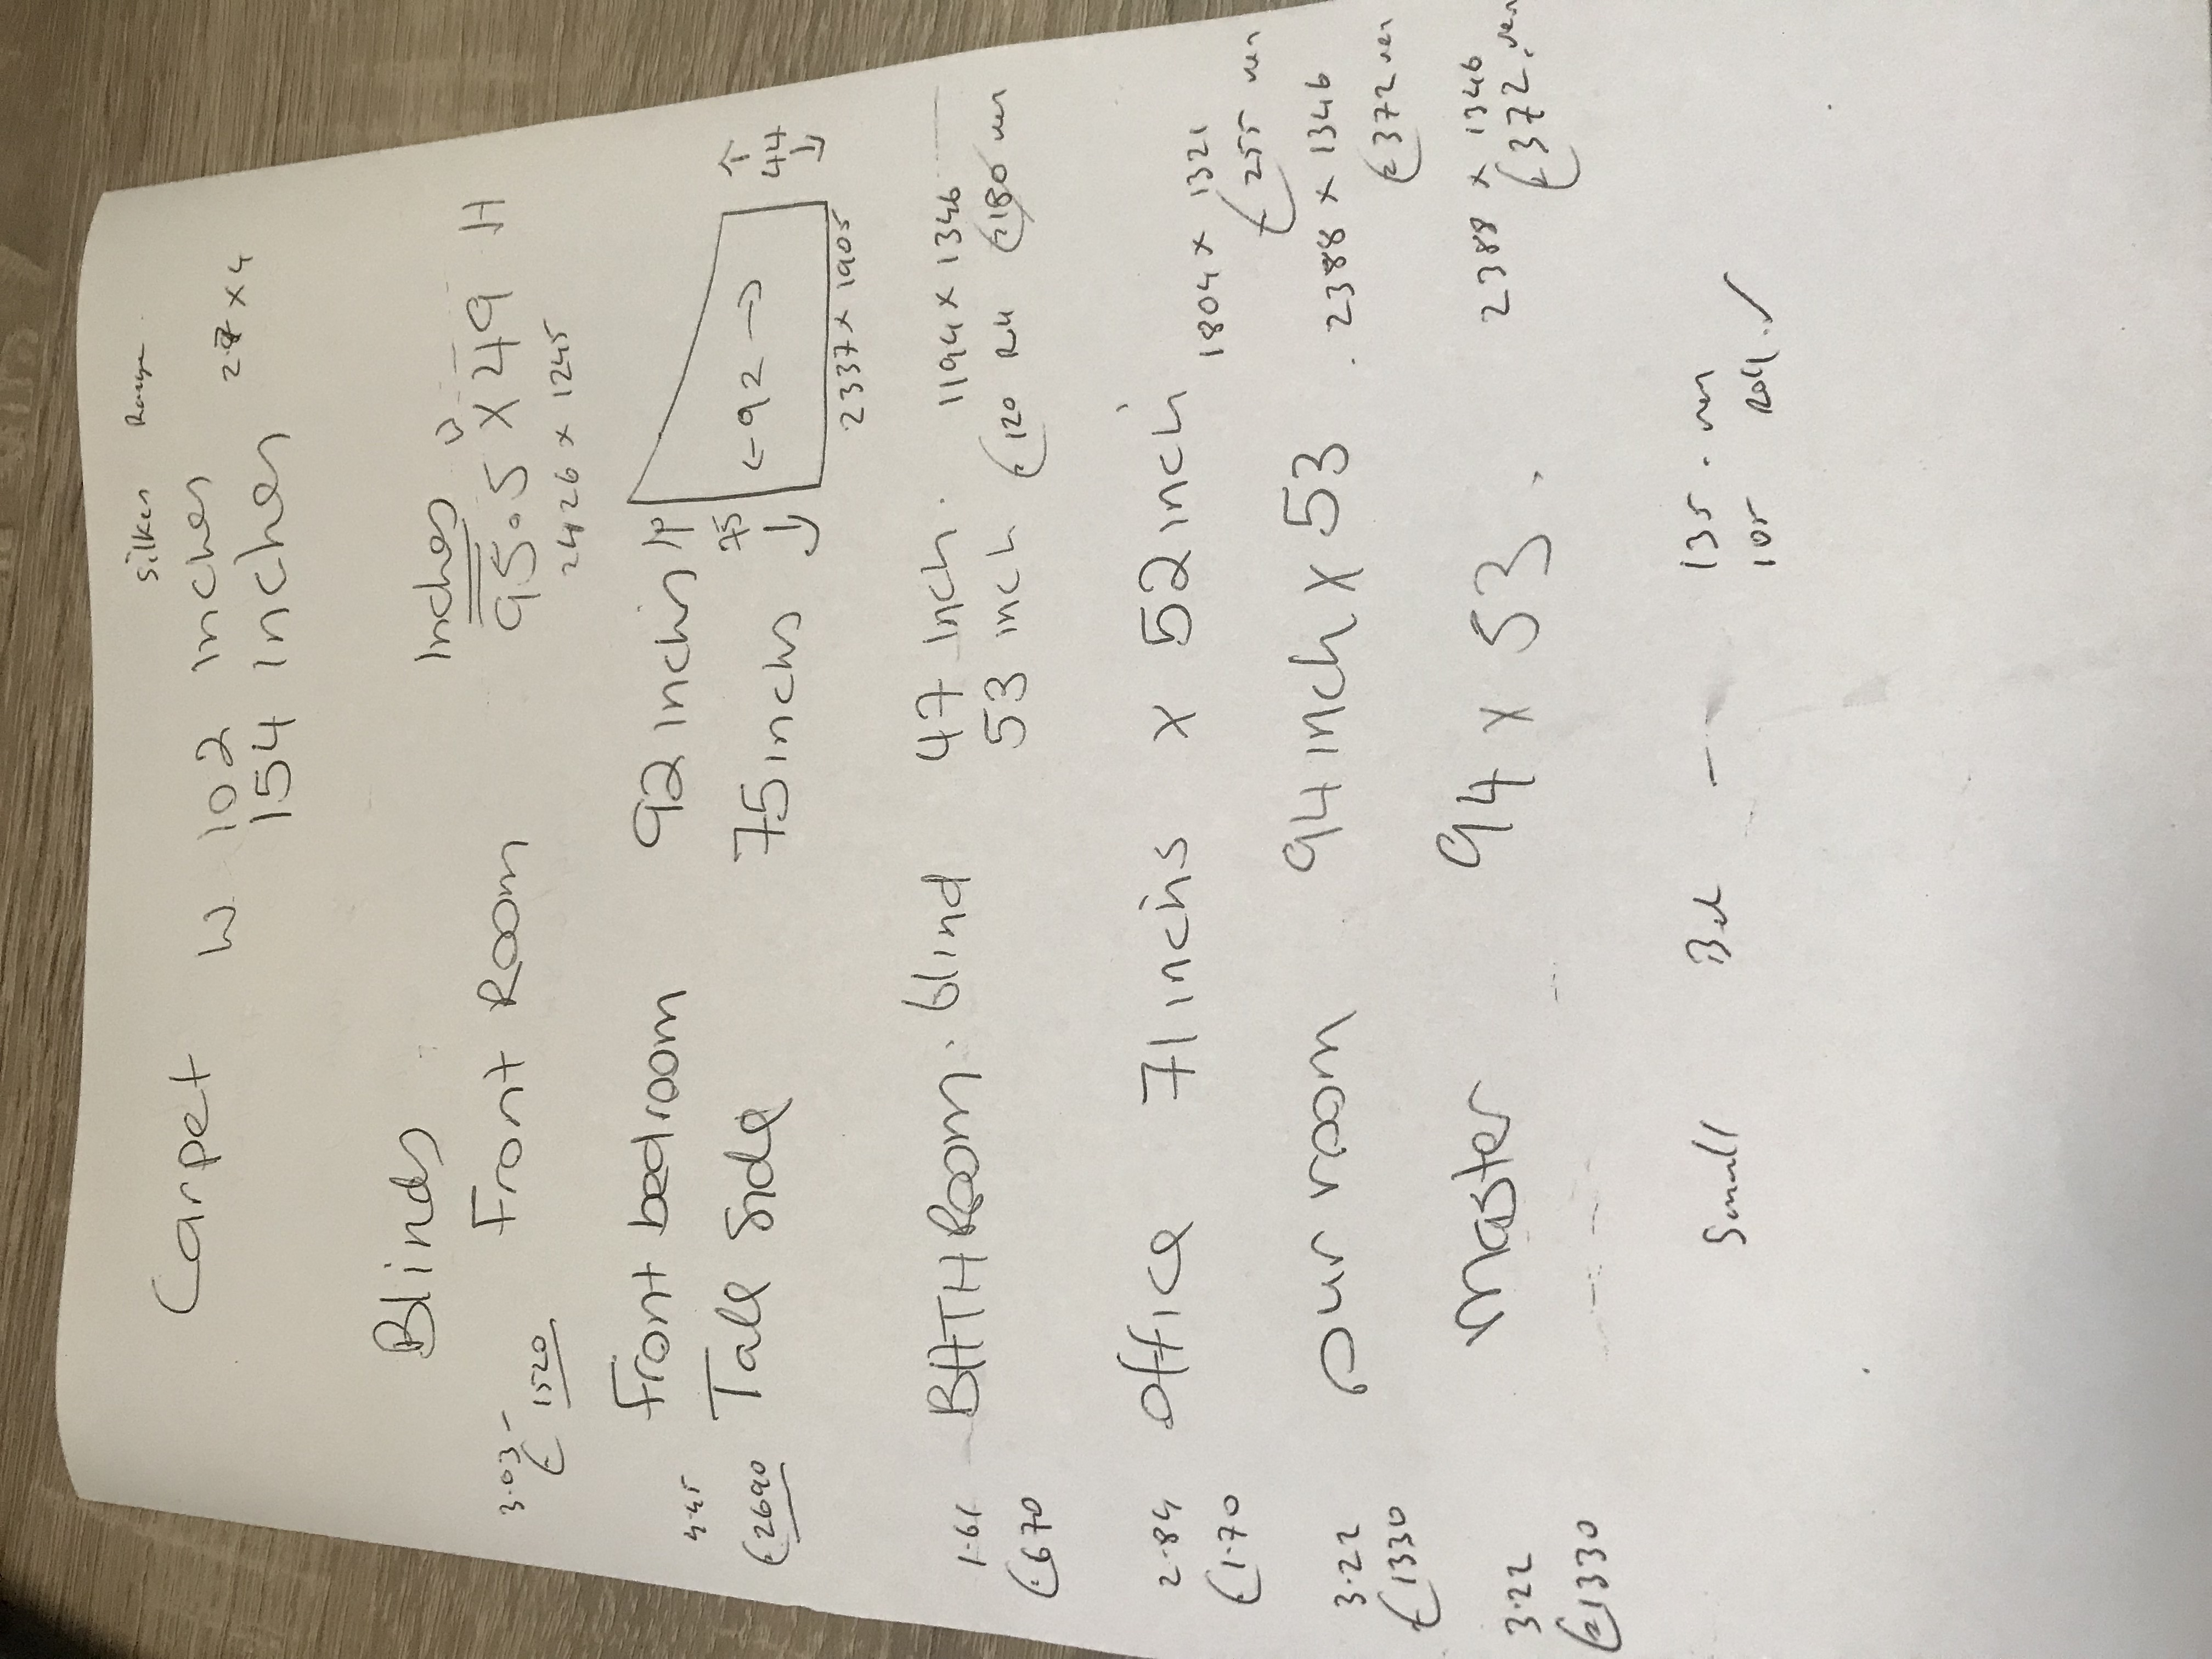 Silken Range
Carpet W 102 inches
154 inches 2 x 4
Blinds Inches
W
Front Room 95.5 x 49 H
3.03 2426 x 1245
£1520
Front bedroom 92 inchis
Tall Side 75 inchs
4.45
£2690
75
←92→
44
2337 x 1905
BHTHRoom. blind 47 Inch. 1194 x 1346
53 inch £120 Roll £180 ver
1.61
£670
Office 71 inchis x 52 inch 1804 x 1321
2.84 £255 ver
£1.70
our room 94 inch x 53 . 2388 x 1346
3.22 £372 ver
£1330
master 94 x 53. 2388 x 1346
3.22 £372. ver
£1330
Small Bed - 135. ver
105 Roll. ✓